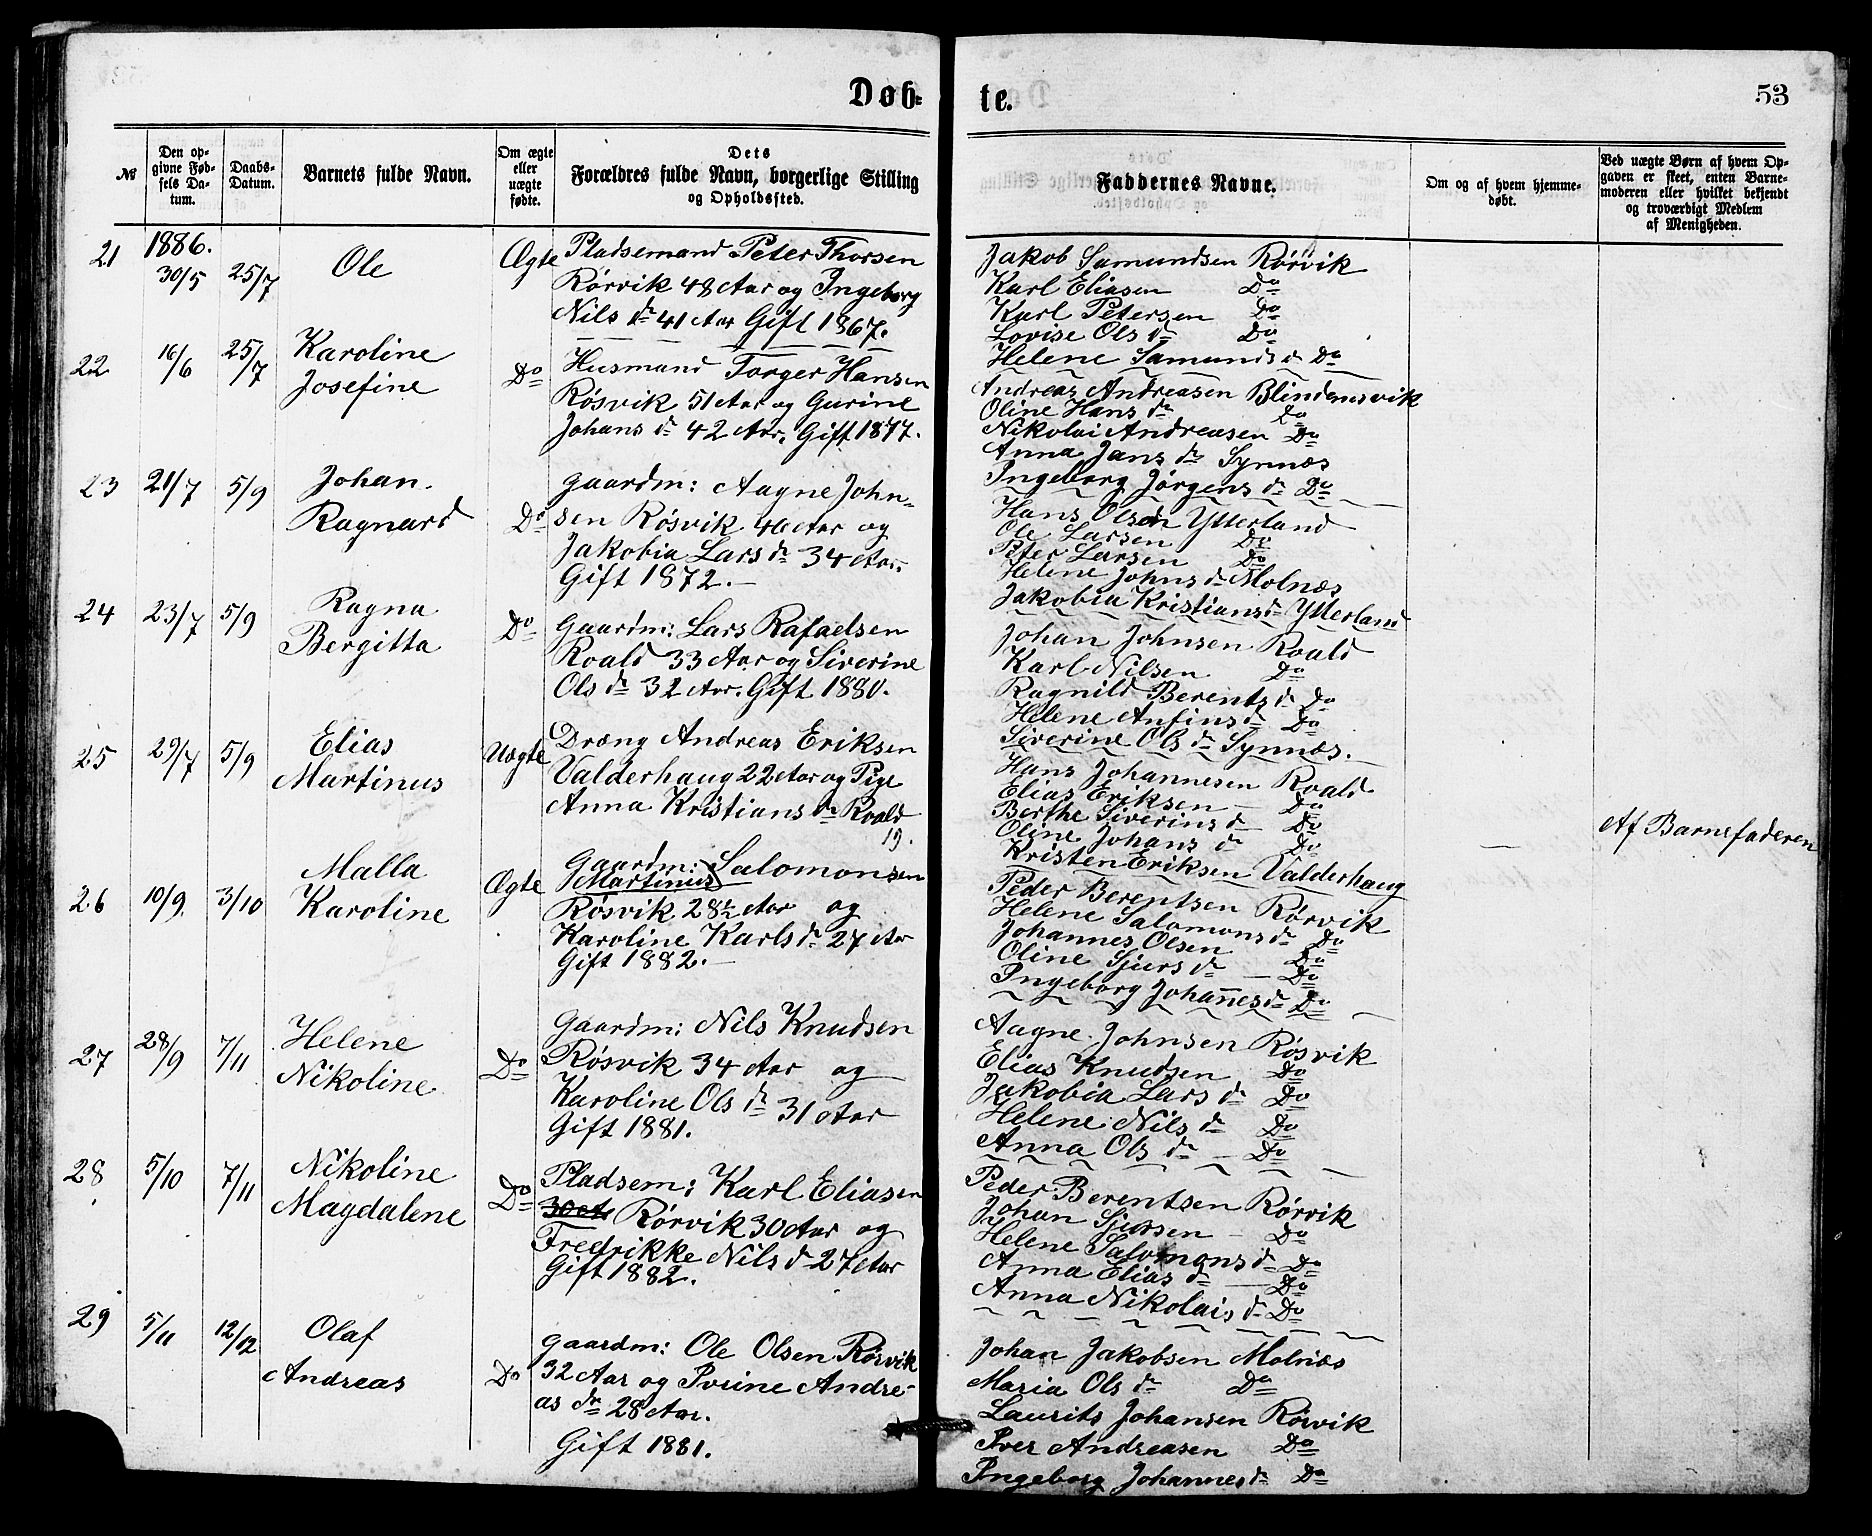 Døb-
te.
53
№
Den op-
givne Fød-
sels Da-
tum.
Daabs-
Datum.
Barnets fulde Navn.
Om ægte
eller
uægte
fødte.
Dets
Forældres fulde Navn, borgerlige Stilling
og Opholdssted.
Faddernes Navne.
Om og af hvem hjemme-
døbt.
Ved uægte Børn af hvem Op-
gaven er skeet, enten Barne-
moderen eller hvilket bekjendt
og troværdigt Medlem
af Menigheden.
1886.
21 30/5 25/7 Ole Ægte
Pladsemand Peter Thorsen
Rørvik 48 Aar og Ingeborg
Nils dr 41 Aar Gift 1867.
Jakob Samundsen Rørvik
Karl Eliasen Do
Karl Petersen Do
Lovise Ols dr Do
Helene Samunds dr Do
22 16/6 25/7 Karoline
Josefine
Do
Husmand Torger Hansen
Røsvik 51 Aar og Gurine
Johans dr 42 Aar. Gift 1877.
Andreas Andreasen Blindemsvik
Oline Hans dr Do
Nikolai Andreasen Do
Anna Jans dr Synnæs
Ingeborg Jørgens dr Do
23 21/7 5/9 Johan
Ragnard
Do
Gaardm: Aagne John-
sen Røsvik 46 Aar og
Jakobia Lars dr 34 Aar.
Gift 1872.
Hans Olsen Ytterland
Ole Larsen Do
Peter Larsen Do
Helene Johns dr Molnæs
Jakobia Kristians dr Ytterland
24 23/7 5/9 Ragna
Bergitta
Do
Gaardm: Lars Rafaelsen
Roald 33 Aar og Siverine
Ols dr 32 Aar. Gift 1880.
Johan Johnsen Roald
Karl Nilsen Do
Ragnild Berents dr Do
Helene Anfins dr Do
Siverine Ols dr Synnæs.
25 29/7 5/9 Elias
Martinus
Uægte
Dræng Andreas Eriksen
Valderhaug 22 Aar og Pige
Anna Kristians dr Roald
19.
Hans Johannesen Roald
Elias Eriksen Do
Berthe Siverins dr Do
Oline Johans dr Do
Kristen Eriksen Valderhaug
—
Af Barnefaderen
26 10/9 3/10 Malla
Karoline
Ægte
Gaardm: Salomonsen
Martinus
Røsvik 28½ Aar og
Karoline Karls dr 27 Aar
Gift 1882.
Peder Berentsen Rørvik
Helene Salomons dr Do
Johannes Olsen Do
Oline Sjurs dr Do
Ingeborg Johañes dr Do
27 28/9 7/11 Helene
Nikoline
Do
Gaardm: Nils Knudsen
Røsvik 34 Aar og
Karoline Ols dr 31 Aar
Gift 1881.
Aagne Johnsen Røsvik
Elias Knudsen Do
Jakobia Lars dr Do
Helene Nils dr Do
Anna Ols dr Do
28 5/10 7/11 Nikoline
Magdalene
Do
Pladsem: Karl Eliasen
Rørvik 30 Aar og
Fredrikke Nils dr 27 Aar
Gift 1882.
Peder Berentsen Rørvik
Johan Sjursen Do
Helene Salomons dr Do
Anna Elias dr Do
Anna Nikolais dr Do
29 5/11 12/12 Olaf
Andreas
Do
Gaardm: Ole Olsen Rørvik
32 Aar og Ivrine Andre-
as dr 28 Aar.
Gift 1881.
Johan Jakobsen Molnæs
Maria Ols dr Do
Laurits Johansen Rørvik
Iver Andreasen Do
Ingeborg Johannes dr Do